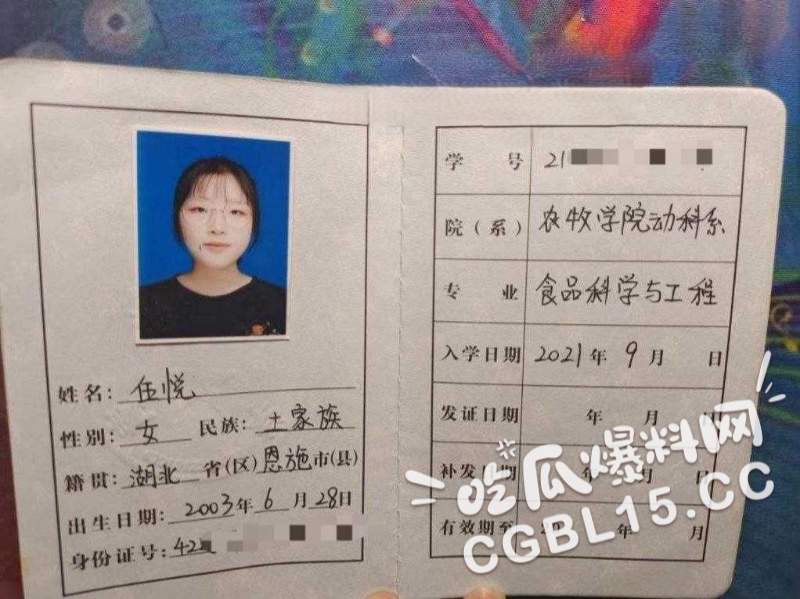 姓名: 伍悦
性别: 女 民族: 土家族
籍贯: 湖北 省(区) 恩施 市(县)
出生日期: 2003年 6 月 28日
身份证号: 42
学 号 21
院(系) 农牧学院动科系
专 业 食品科学与工程
入学日期 2021 年 9 月 日
发证日期 年 月 日
补发日期 年 月 日
有效期至 年 月
吃瓜爆料网
CGBL15.CC